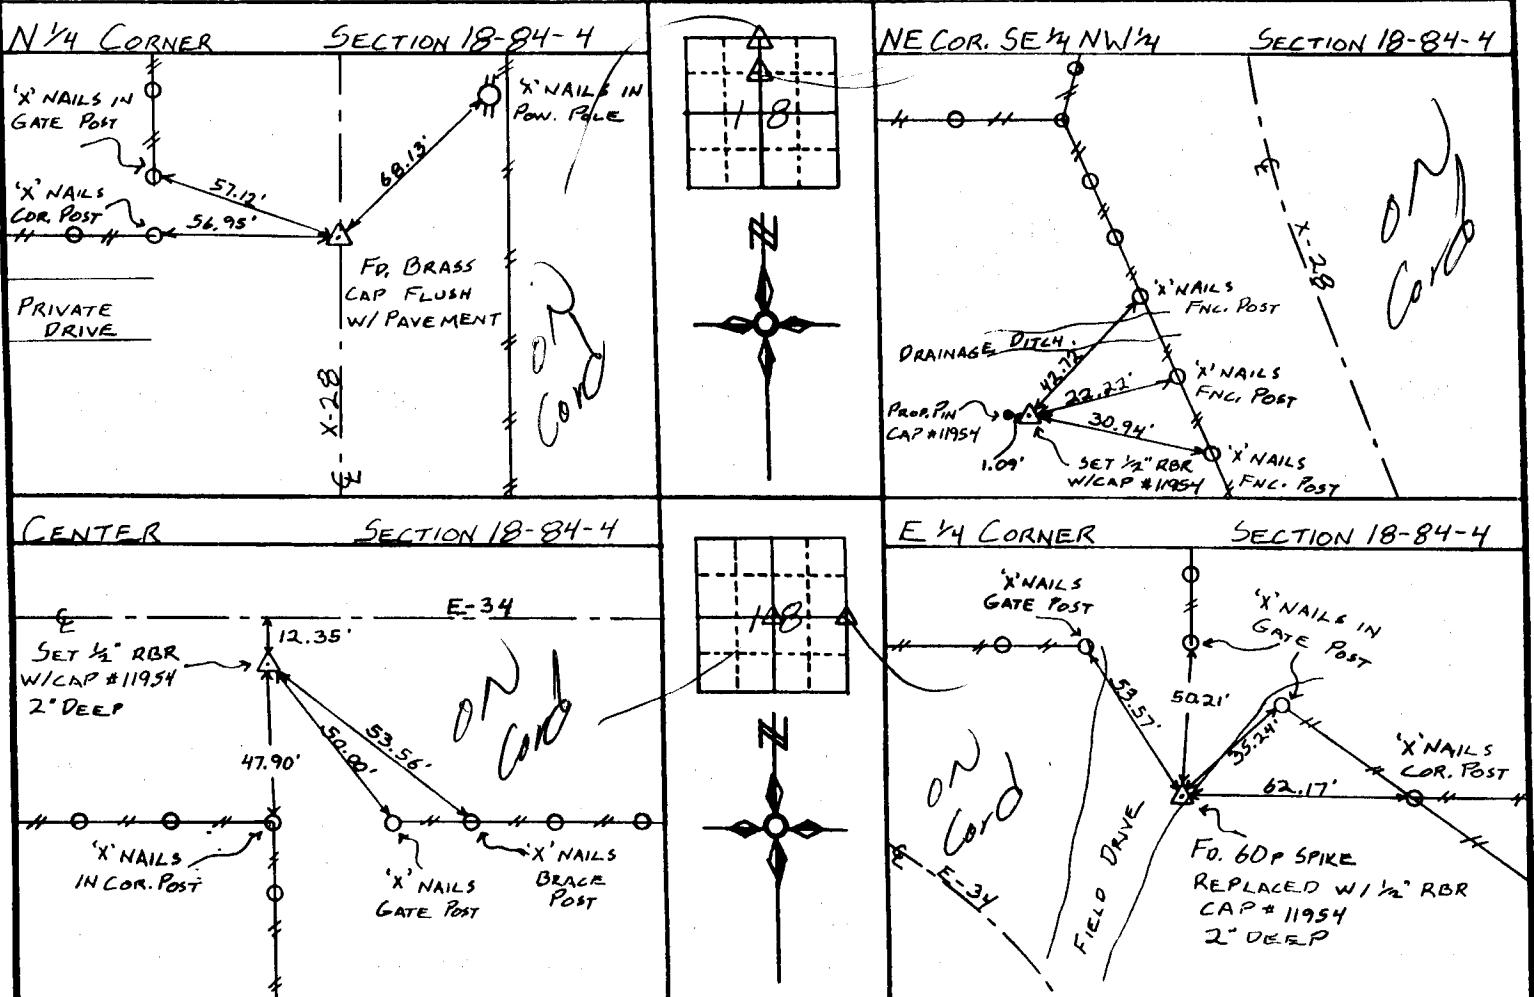 N 1/4 CORNER SECTION 18-84-4
'X' NAILS IN
GATE POST
'X' NAILS IN
POW. POLE
68.13'
57.12'
'X' NAILS
COR. POST
56.95'
FD. BRASS
CAP FLUSH
W/ PAVEMENT
PRIVATE
DRIVE
X-28
℄
ON
Cord
18
N
NE COR. SE 1/4 NW 1/4 SECTION 18-84-4
X-28
ON
Cord
'X' NAILS
FNC. POST
DRAINAGE DITCH
42.72'
22.22'
'X' NAILS
FNC. POST
PROP. PIN
CAP #11954
30.94'
1.09'
SET 1/2" RBR
W/CAP #11954
'X' NAILS
FNC. POST
CENTER SECTION 18-84-4
℄
E-34
12.35'
SET 1/2" RBR
W/CAP #11954
2" DEEP
47.90'
50.00'
53.56'
ON
Cord
'X' NAILS
IN COR. POST
'X' NAILS
GATE POST
'X' NAILS
BRACE
POST
18
N
E 1/4 CORNER SECTION 18-84-4
'X' NAILS
GATE POST
'X' NAILS IN
GATE POST
53.57'
50.21'
35.24'
62.17'
'X' NAILS
COR. POST
ON
Cord
℄
E-34
FIELD DRIVE
FD. 60P SPIKE
REPLACED W/ 1/2" RBR
CAP # 11954
2" DEEP